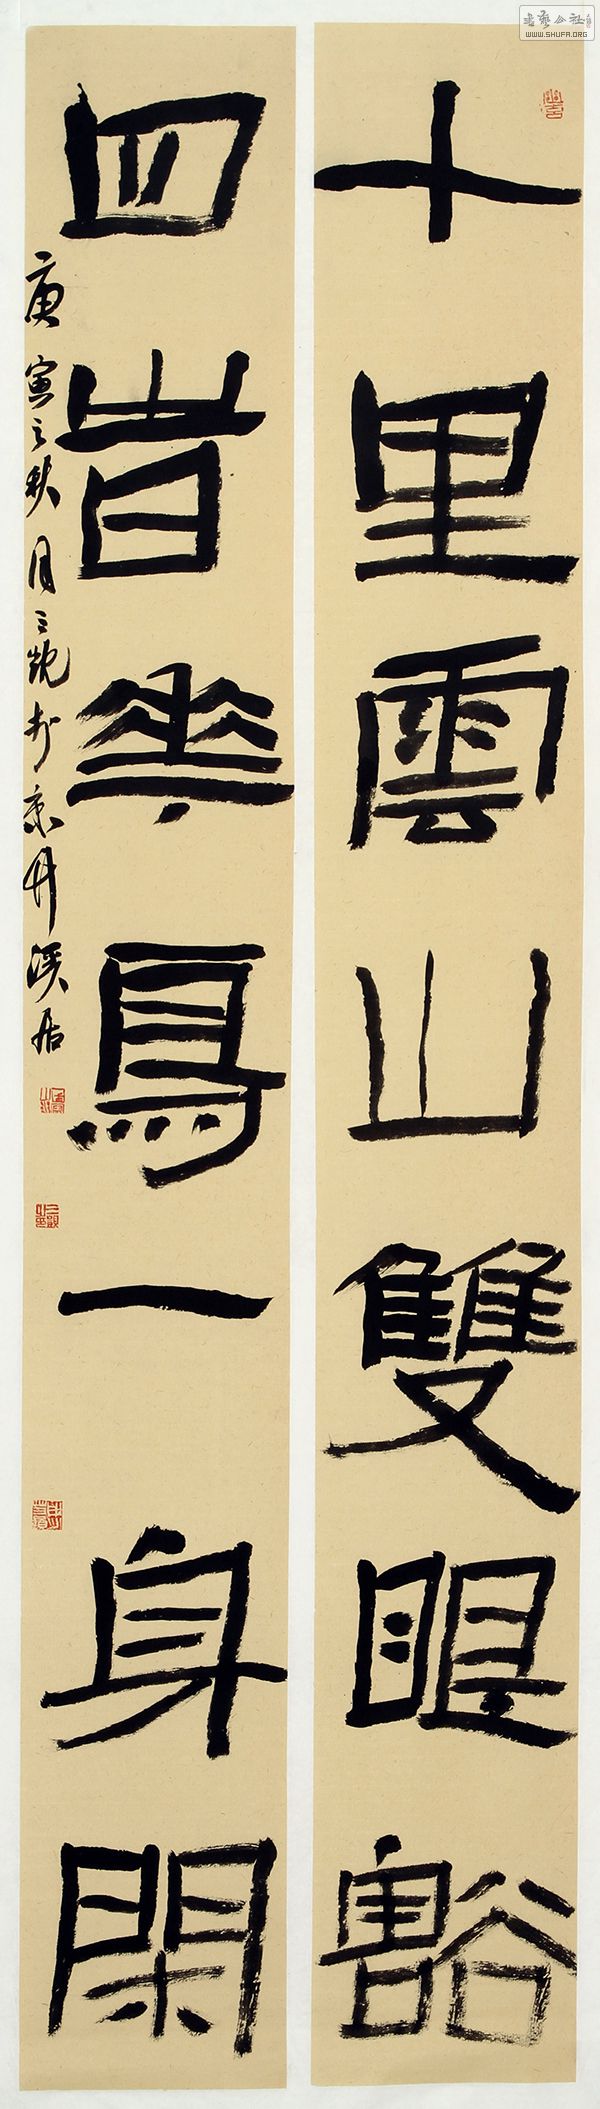 十里雲山雙眼豁
四旹花鳥一身閑
庚寅之秋月三凯於京丹溪居
書藝公社
WWW.SHUFA.ORG